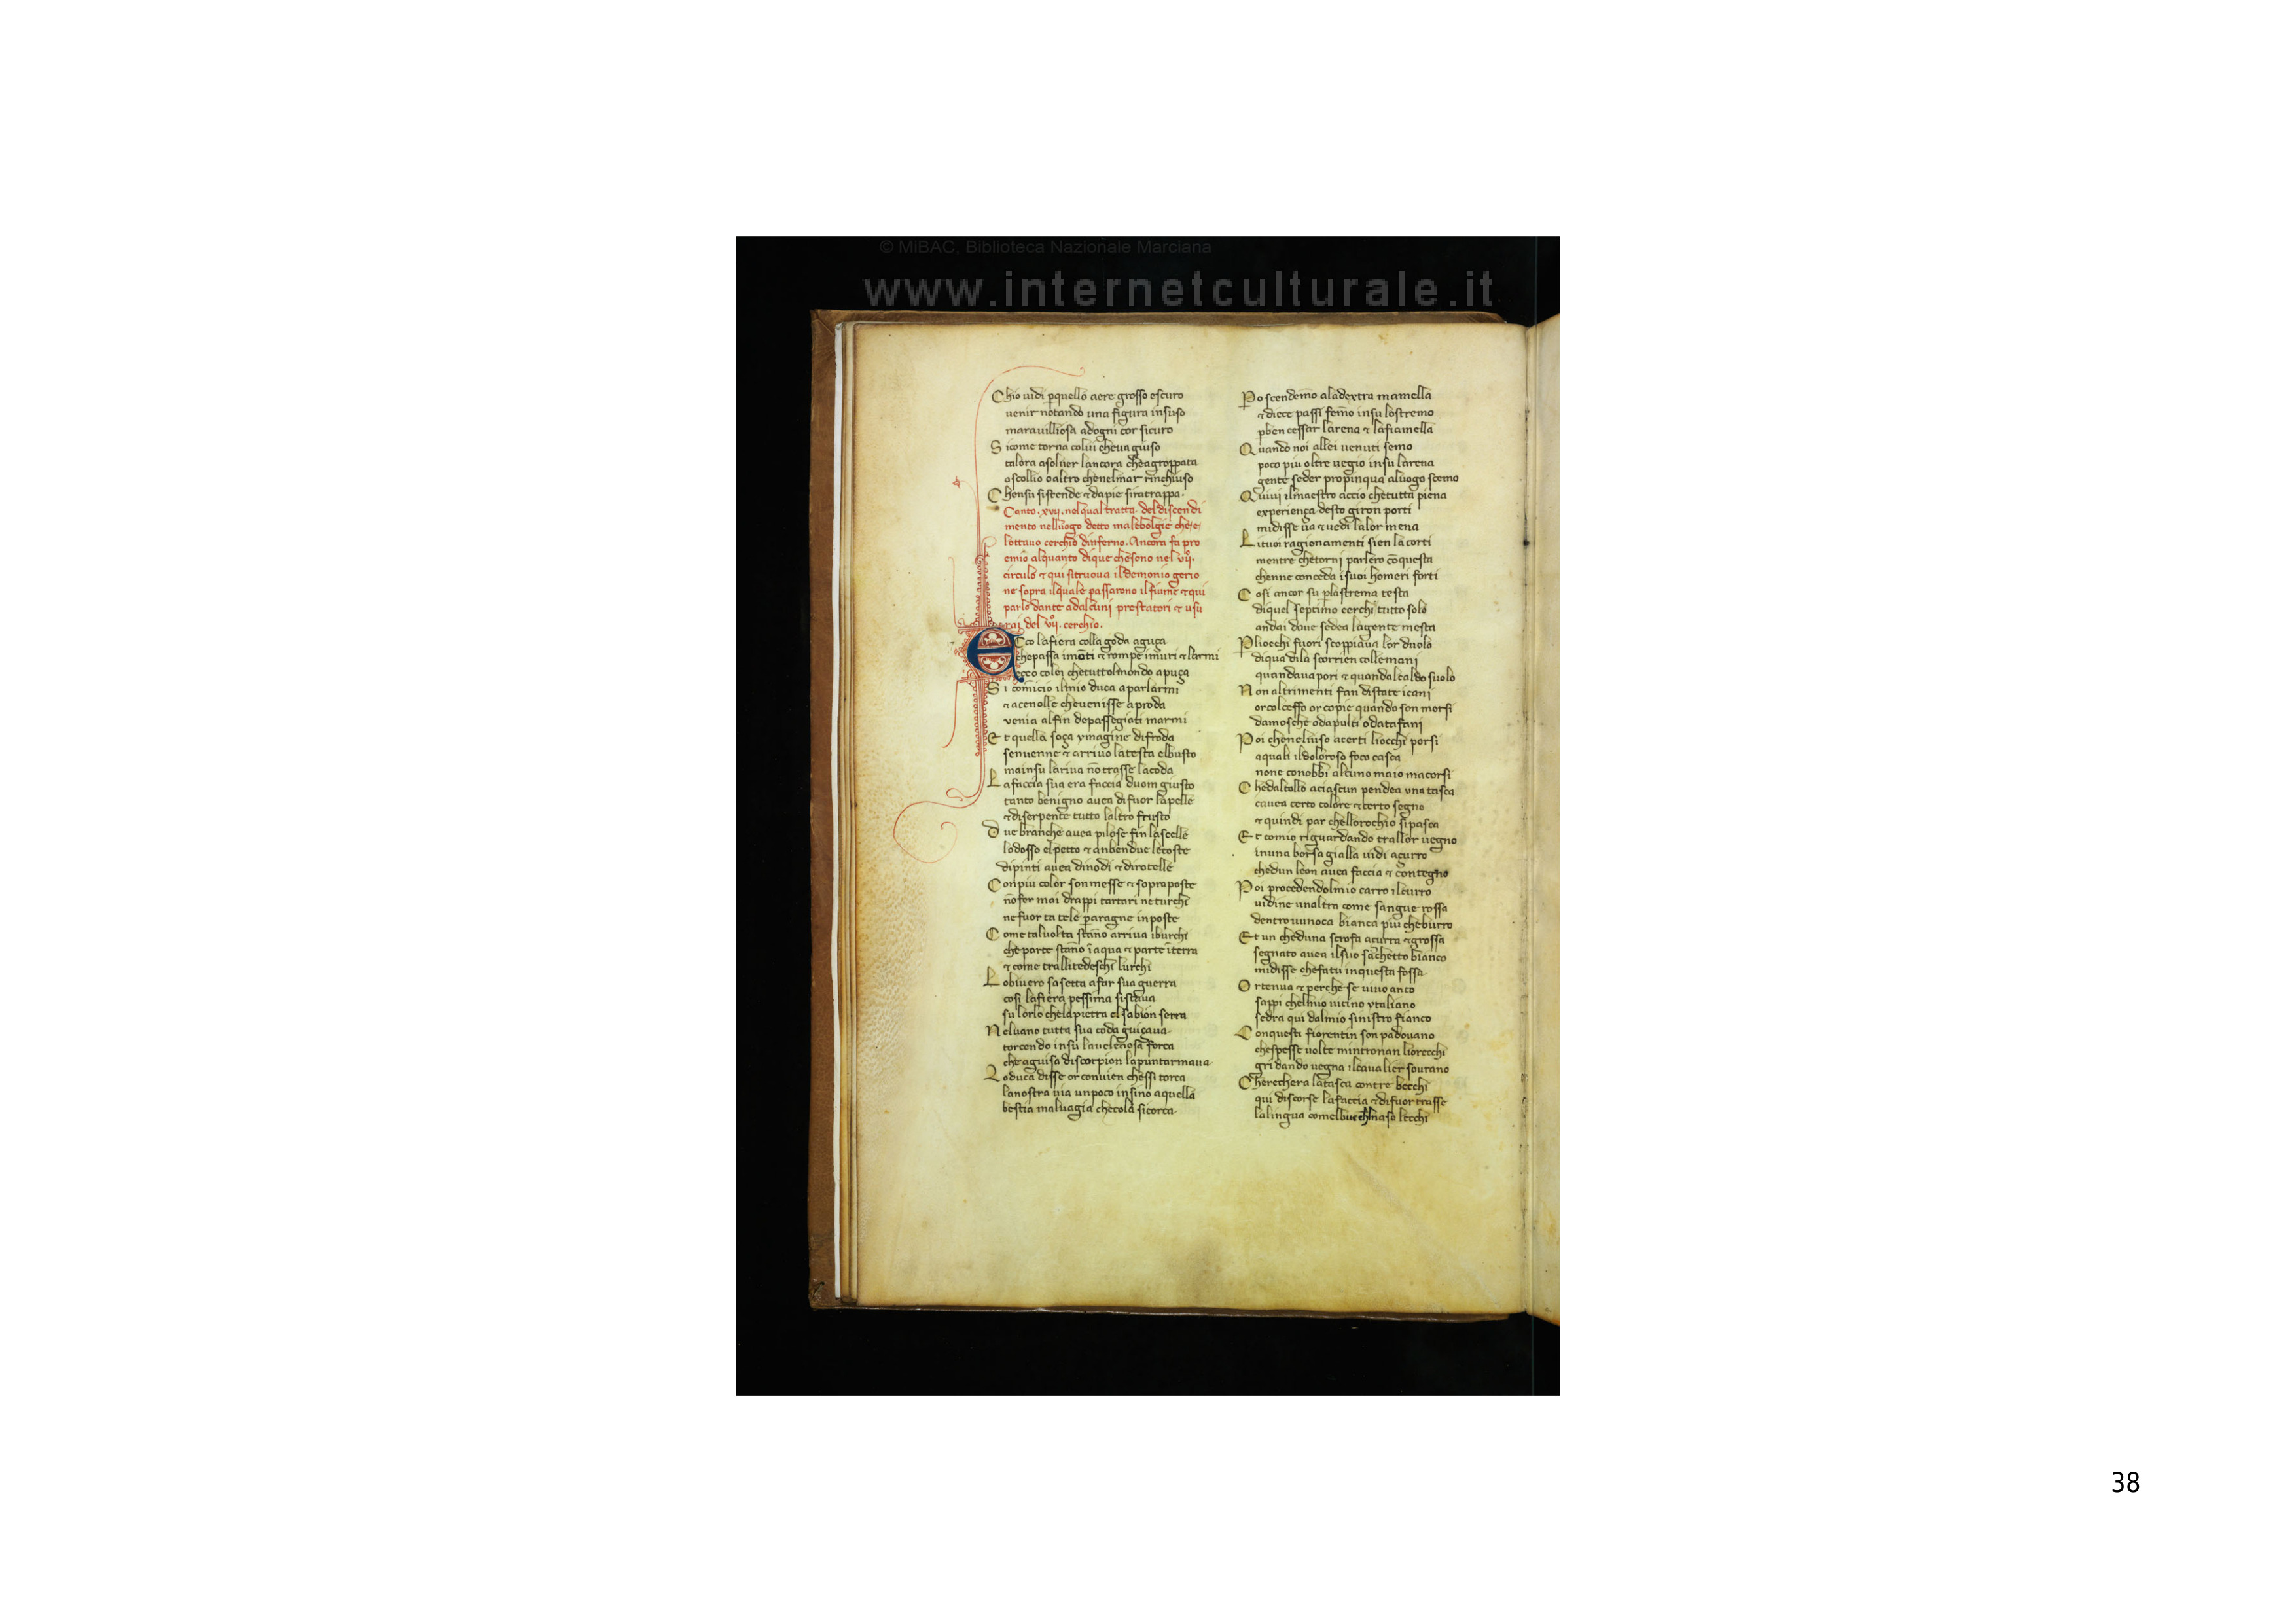 © MiBAC, Biblioteca Nazionale Marciana
www.internetculturale.it
Chio uidi ꝑquello aere grosso escuro
uenir notando una figura insuso
marauilliosa adogni cor sicuro
Sicome torna colui cheua giuso
talora asoluer lancora cheagroppata
oscollio oaltro chenelmar rinchiuso
Chensu sistende ⁊ dapie siratrappa.
Canto .xvij. nelqual tratta del discendi
mento nelluogo detto malebolgie che .e.
lottauo cerchio dinferno. Ancora fa pro
emio alquanto dique chesono nel vijº.
circulo ⁊ qui sitruoua il demonio gerio
ne sopra ilquale passarono il fiume ⁊ qui
parlo dante adalcuni prestatori ⁊ usu
rai del vijº. cerchio.
Ecco lafiera colla goda aguça
chepassa imōti ⁊ rompe imuri ⁊ larmi
ecco colei chetuttolmondo apuça
Si comīcio ilmio duca aparlarmi
⁊ acenolle cheuenisse aproda
venia alfin depassegiati marmi
Et quella soça ymagine difroda
senuenne ⁊ arriuo latesta elbusto
mainsu lariua nōtrasse lacoda
Lafaccia sua era faccia duom giusto
tanto benigno auea difuor lapelle
⁊ diserpente tutto laltro frusto
Due branche auea pilose fin lascelle
lodosso elpetto ⁊ anbendue lecoste
dipinti auea dinodi ⁊ dirotelle
Conpiu color sonmesse ⁊ sopraposte
nōfer mai drappi tartari neturchi
nefuor ta tele ꝑaragne inposte
Come taluolta stāno ariua iburchi
che parte stāno ī aqua ⁊ parte īterra
⁊ come trallitedeschi lurchi
Lobiuero sasetta afar sua guerra
cosi lafiera pessima sistaua
su lorlo chelapietra el sabion serra
Neluano tutta sua coda guiçaua
torcendo insu lauelenosa forca
che aguisa discorpion lapuntarmaua
Loduca disse or conuien chessi torca
lanostra uia unpoco insino aquella
bestia maluagia checola sicorca
Po scendēmo aladextra mamella
⁊ diece passi femo insu lostremo
ꝑben cessar larena ⁊ lafiamella
Quando noi allei uenuti semo
poco piu oltre uegio insu larena
gente seder propinqua aluogo scemo
Quiui ilmaestro accio chetutta piena
experiença desto giron porti
midisse ua ⁊ uedi lalor mena
Lituoi ragionamenti sien la corti
mentre chetorni parlero cōquesta
chenne conceda isuoi homeri forti
Cosi ancor su ꝑlastrema testa
diquel septimo cerchi tutto solo
andai doue sedea lagente mesta
Pliocchi fuori scoppiaua lor duolo
diqua dila scorrien collemani
quandauapori ⁊ quandalcaldo suolo
Non altrimenti fan distate icani
orcolceffo orcopie quando son morsi
damosche odapulci odatafani
Poi cheneluiso acerti liocchi porsi
aquali ildoloroso foco casca
none conobbi alcuno maio macorsi
Chedalcollo aciascun pendea vna tasca
cauea certo colore ⁊ certo segno
⁊ quindi par chellorochio sipasca
Et comio riguardando trallor uegno
inuna borsa gialla uidi açurro
chedun leon auea faccia ⁊ contegno
Poi procedendolmio carro ilcurro
uidine unaltra come sangue rossa
dentrouunoca bianca piu cheburro
Et un cheduna scrofa açurra ⁊ grossa
segnato auea ilsuo sachetto bianco
midisse chefatu inquesta fossa
Ortenua ⁊ perche se uiuo anco
sappi chelmio uicino vtaliano
sedra qui dalmio sinistro fianco
Conquesti fiorentin son padouano
chespesse uolte mintronan liorecchi
gridando uegna ilcaualier sourano
Cherechera latasca contre becchi
qui discorse lafaccia ⁊ difuor trasse
lalingua comelbue chlnaso lecchi
38